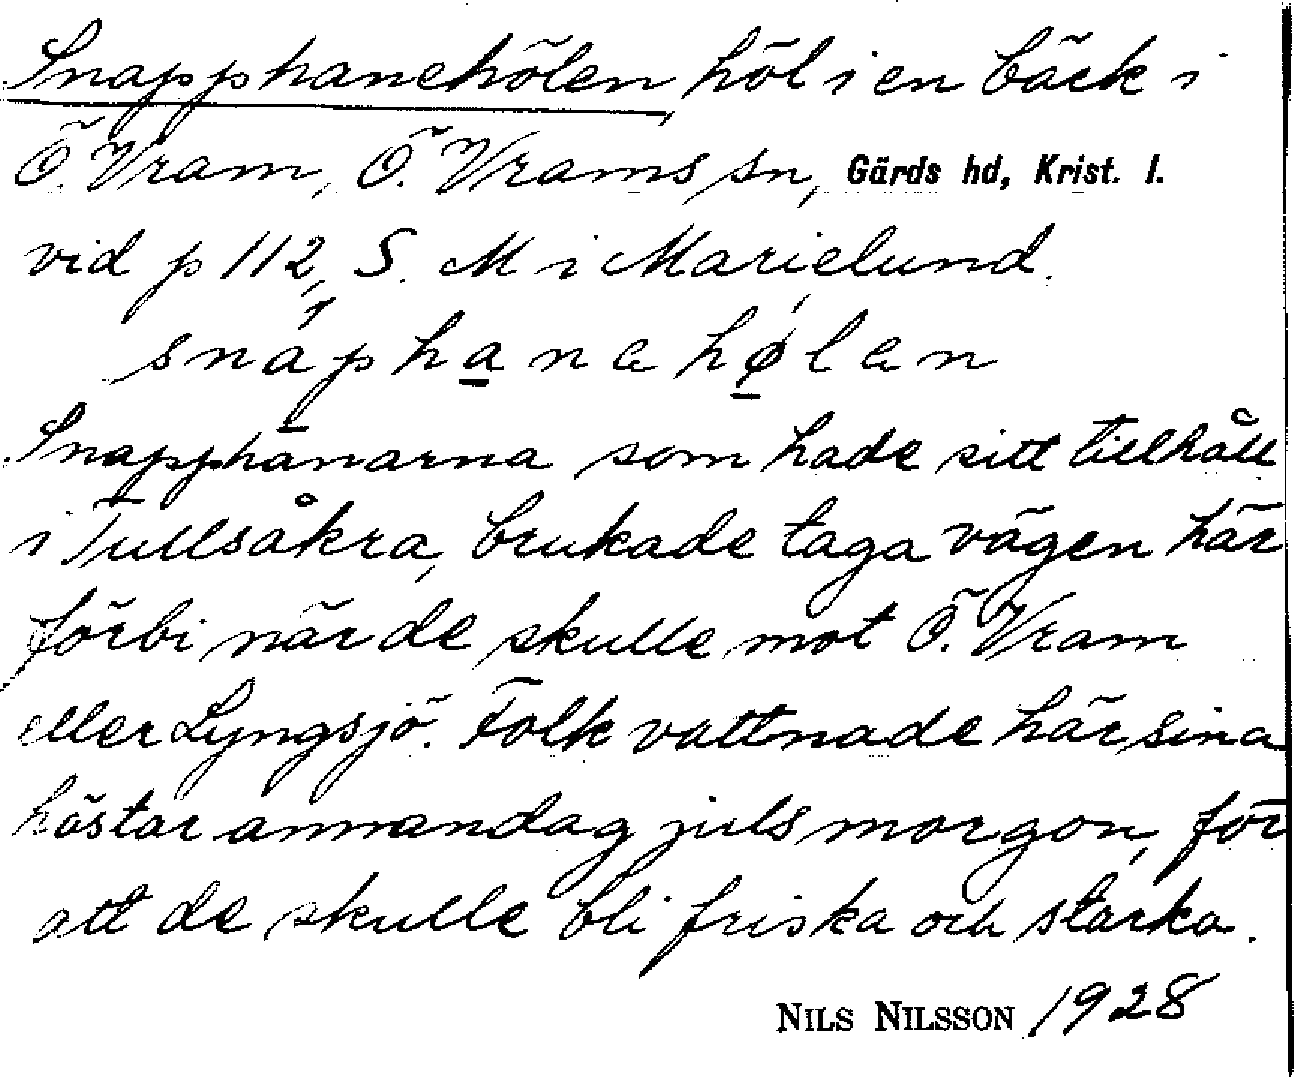 Snapphanehölen, höl i en bäck i
Ö. Vram, Ö. Vrams sn, Gärds hd, Krist. l.
vid p 112, S. M i Marielund.
snáphanahǿlan
Snapphanarna som hade sitt tillhåll
i Tullsåkra, brukade taga vägen här
förbi när de skulle mot Ö. Vram
eller Lyngsjö. Folk vattnade här sina
hästar annandag juls morgon, för
att de skulle bli friska och starka.
NILS NILSSON 1928